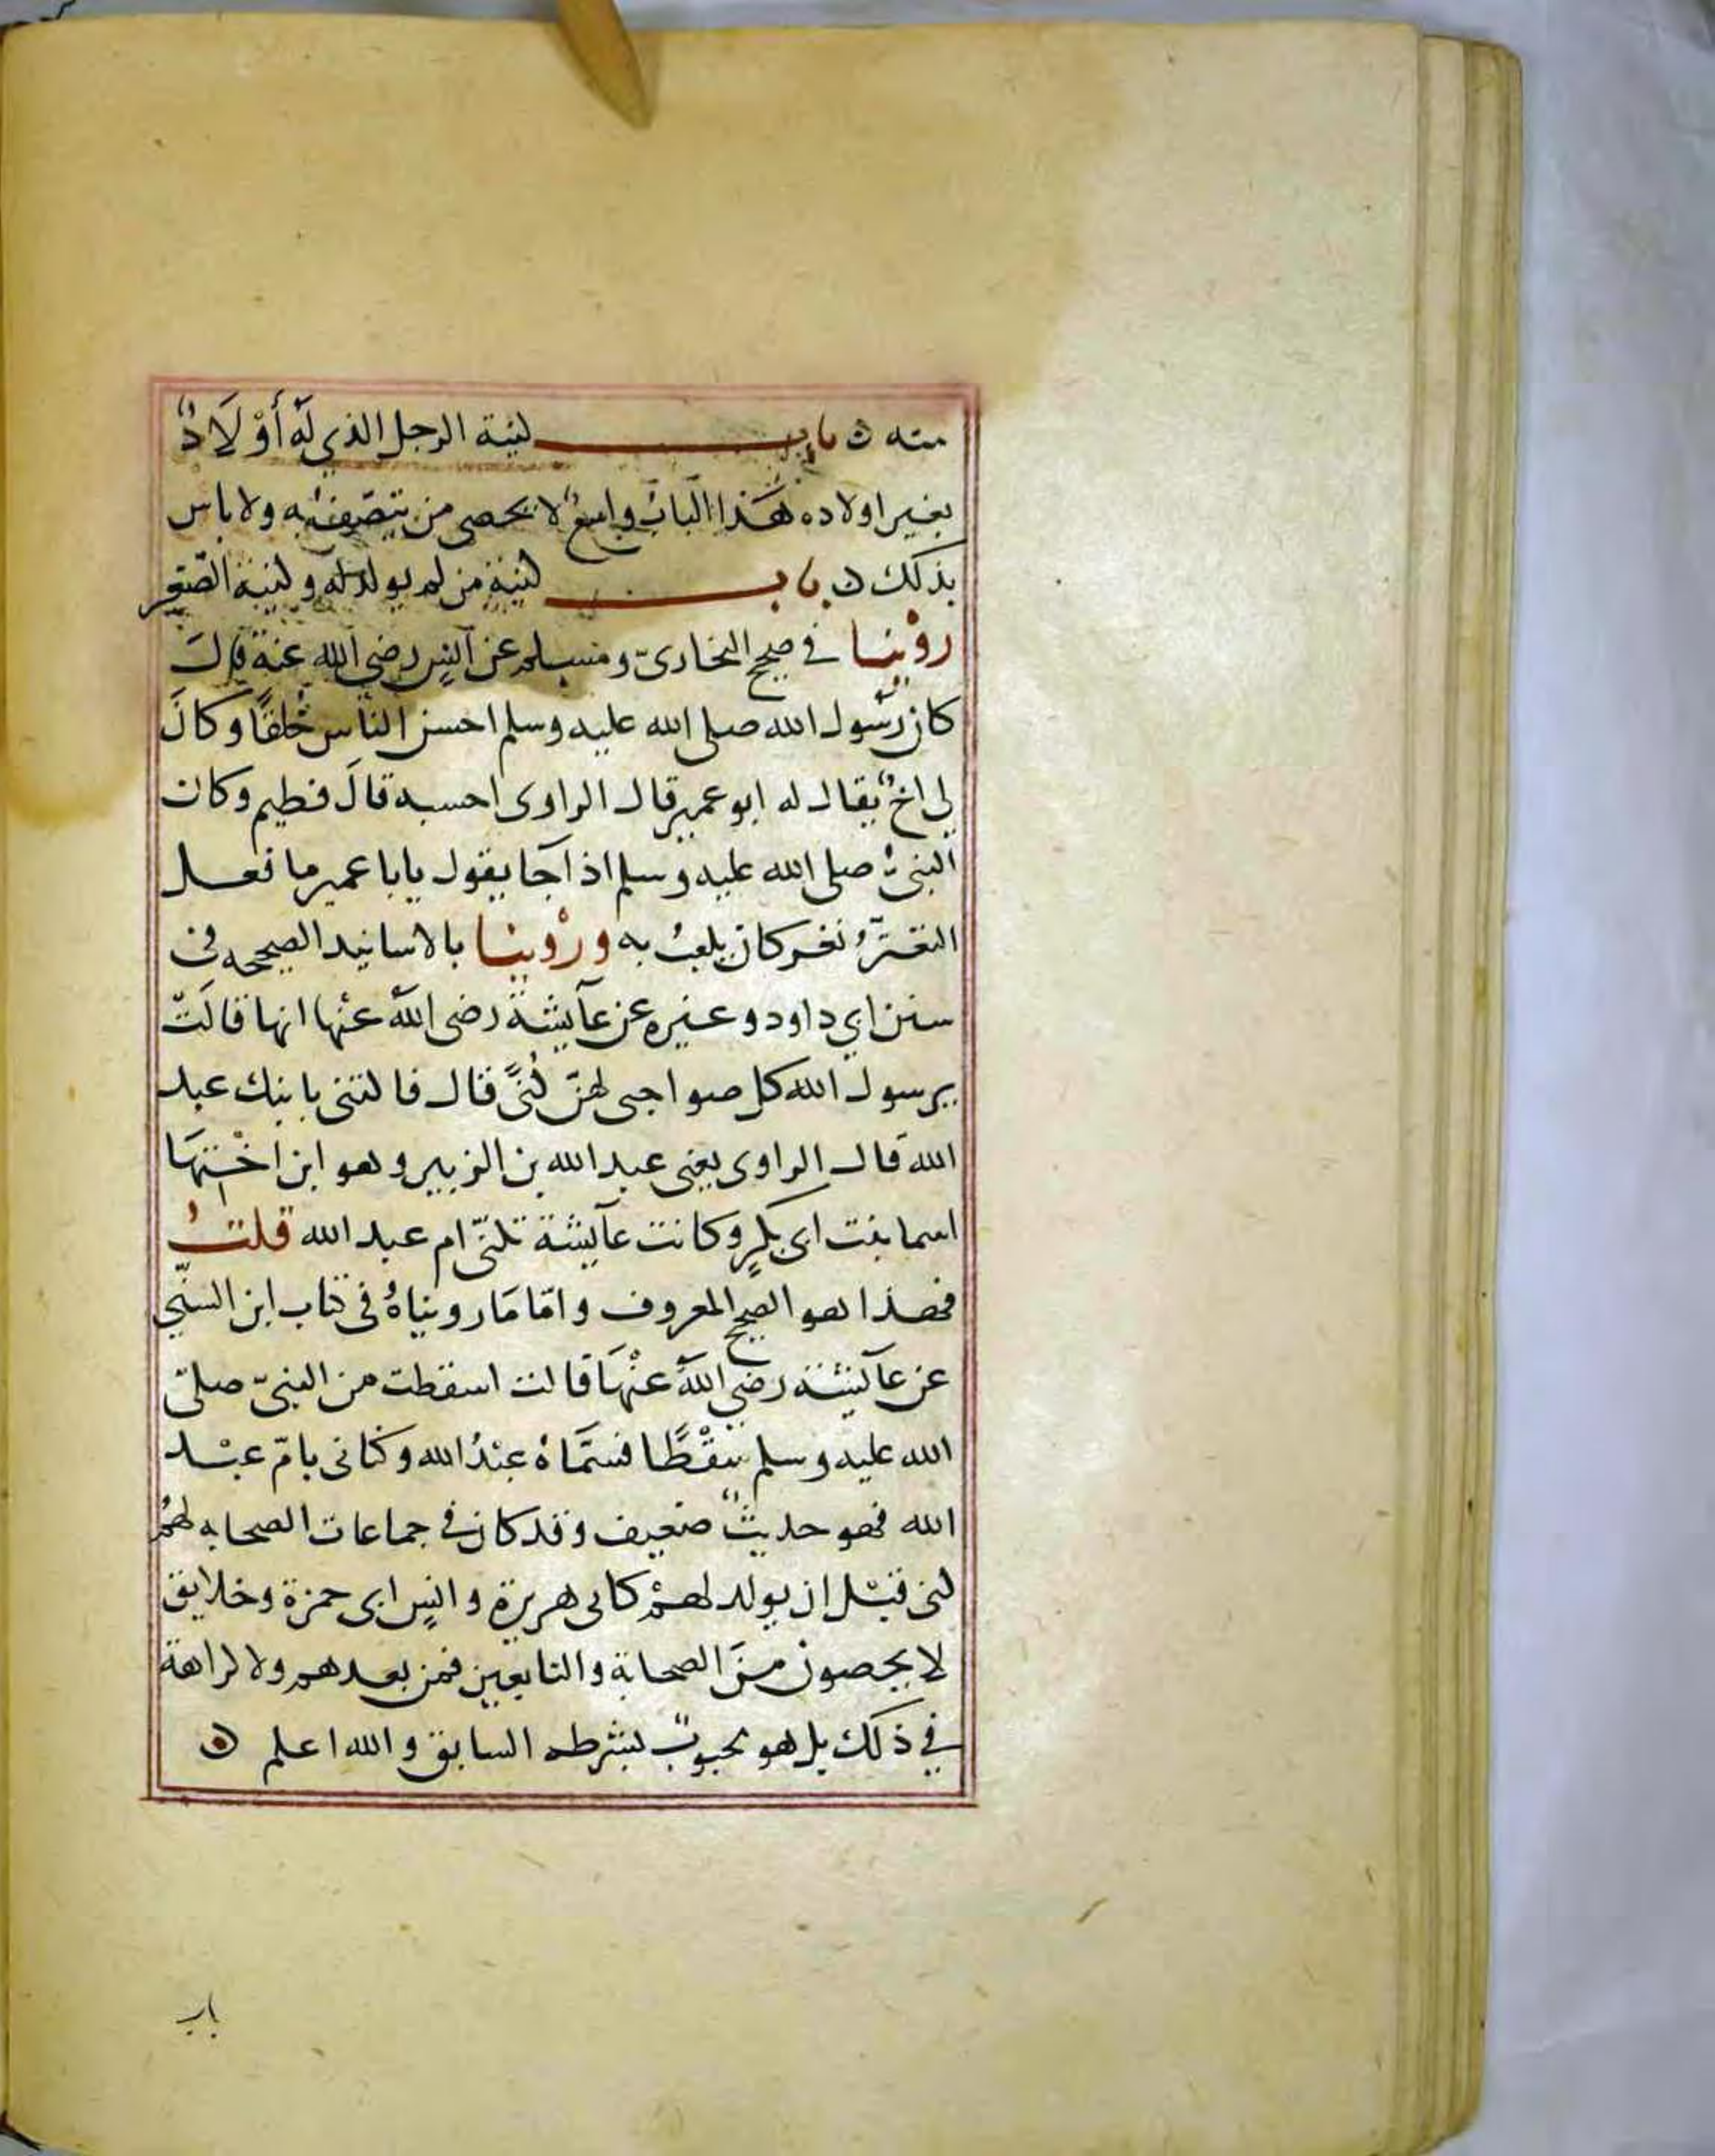 منه ن باب كنية الرجل الذي له أَوْلَادٌ
بغير اولاده هَذا البابُ واسعٌ لا يحصى من يتصف به ولا باس
بذلك ن باب كنية من لم يولد له وكنية الصّغير
روْينا في صحيح البخاريّ ومسلم عن انسٍ رضي الله عنه قال
كان رَسُول الله صلى الله عليه وسلم احسن الناس خُلقًا وكانَ
لي اخٌ يقال له ابو عمير قال الراوى احسبه قالَ فطيم وكان
النبىُّ صلى الله عليه وسلم اذا جا يقول يابا عمير ما فعل
النغيّرُ نغر كان يلعبُ به ورُوْينا بالاسانيد الصحيحه في
سنن ابي داود وغيره عن عآيشةَ رضى اللهُ عنْها انها قالَتْ
يرسول الله كل صواحبى لهنّ كُنًى قال فاكتنى بابنك عبد
الله قال الراوى يعنى عبد الله بن الزبير وهو ابن اخْتِهَا
اسما بنت ابى بكرٍ وكانت عآيشة تكنّى ام عبد الله قلتُ
فهذا هو الصحيح المعروف وامّا مَا رويناهُ فى كتاب ابن السنّي
عن عآيشة رضي اللهُ عنْهَا قالت اسقطت من النبىّ صلىّ
الله عليه وسلم سقْطًا فسمَّاهُ عبْدُ الله وكنانى بامّ عبْد
الله فهو حديثٌ ضعيف وقد كان في جماعات الصحابه لهُمْ
كنى قبْل ان يولد لهمْ كابى هريرة وانسٍ ابى حمزة وخلايق
لا يحصون منَ الصحابة والتابعين فمن بعدهم ولا كراهة
في ذلك بل هو محبوبٌ بشرطه السابق والله اعلم ن
باب